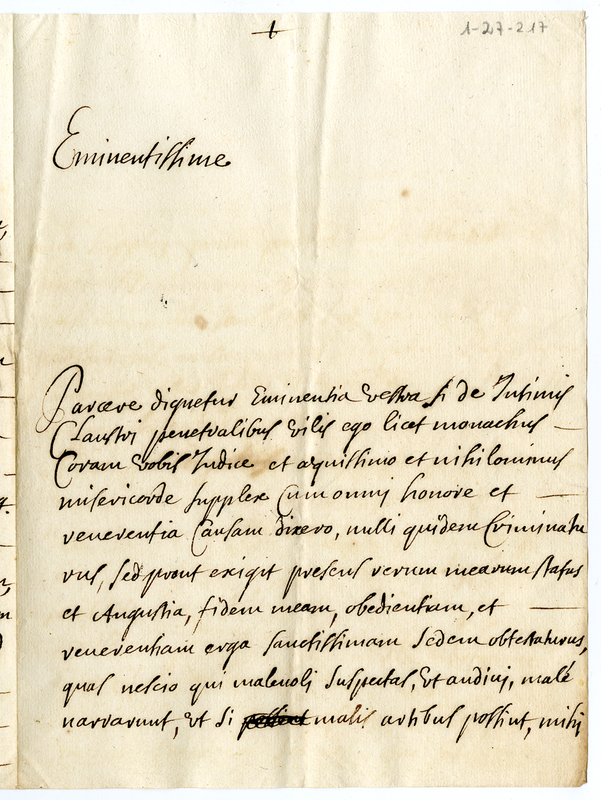 1-27-217
Eminentissime
Parcere dignetur Eminentia Vestra si de Intimis
Claustri penetralibus Vilis ego licet monachus
Coram Vobis Judice et æquissimo et nihilominus
misericorde supplex Cum omni honore et
reverentia Causam dixero, nulli quidem Criminatu
rus, sed prout exigit presens rerum mearum status
et Angustia, fidem meam, obedientiam, et
reverentiam erga sanctissimam Sedem obtestaturus,
quas nescio qui malevoli suspectas, Ut audivi, malè
narrarunt, Ut si malis artibus possint, mihi